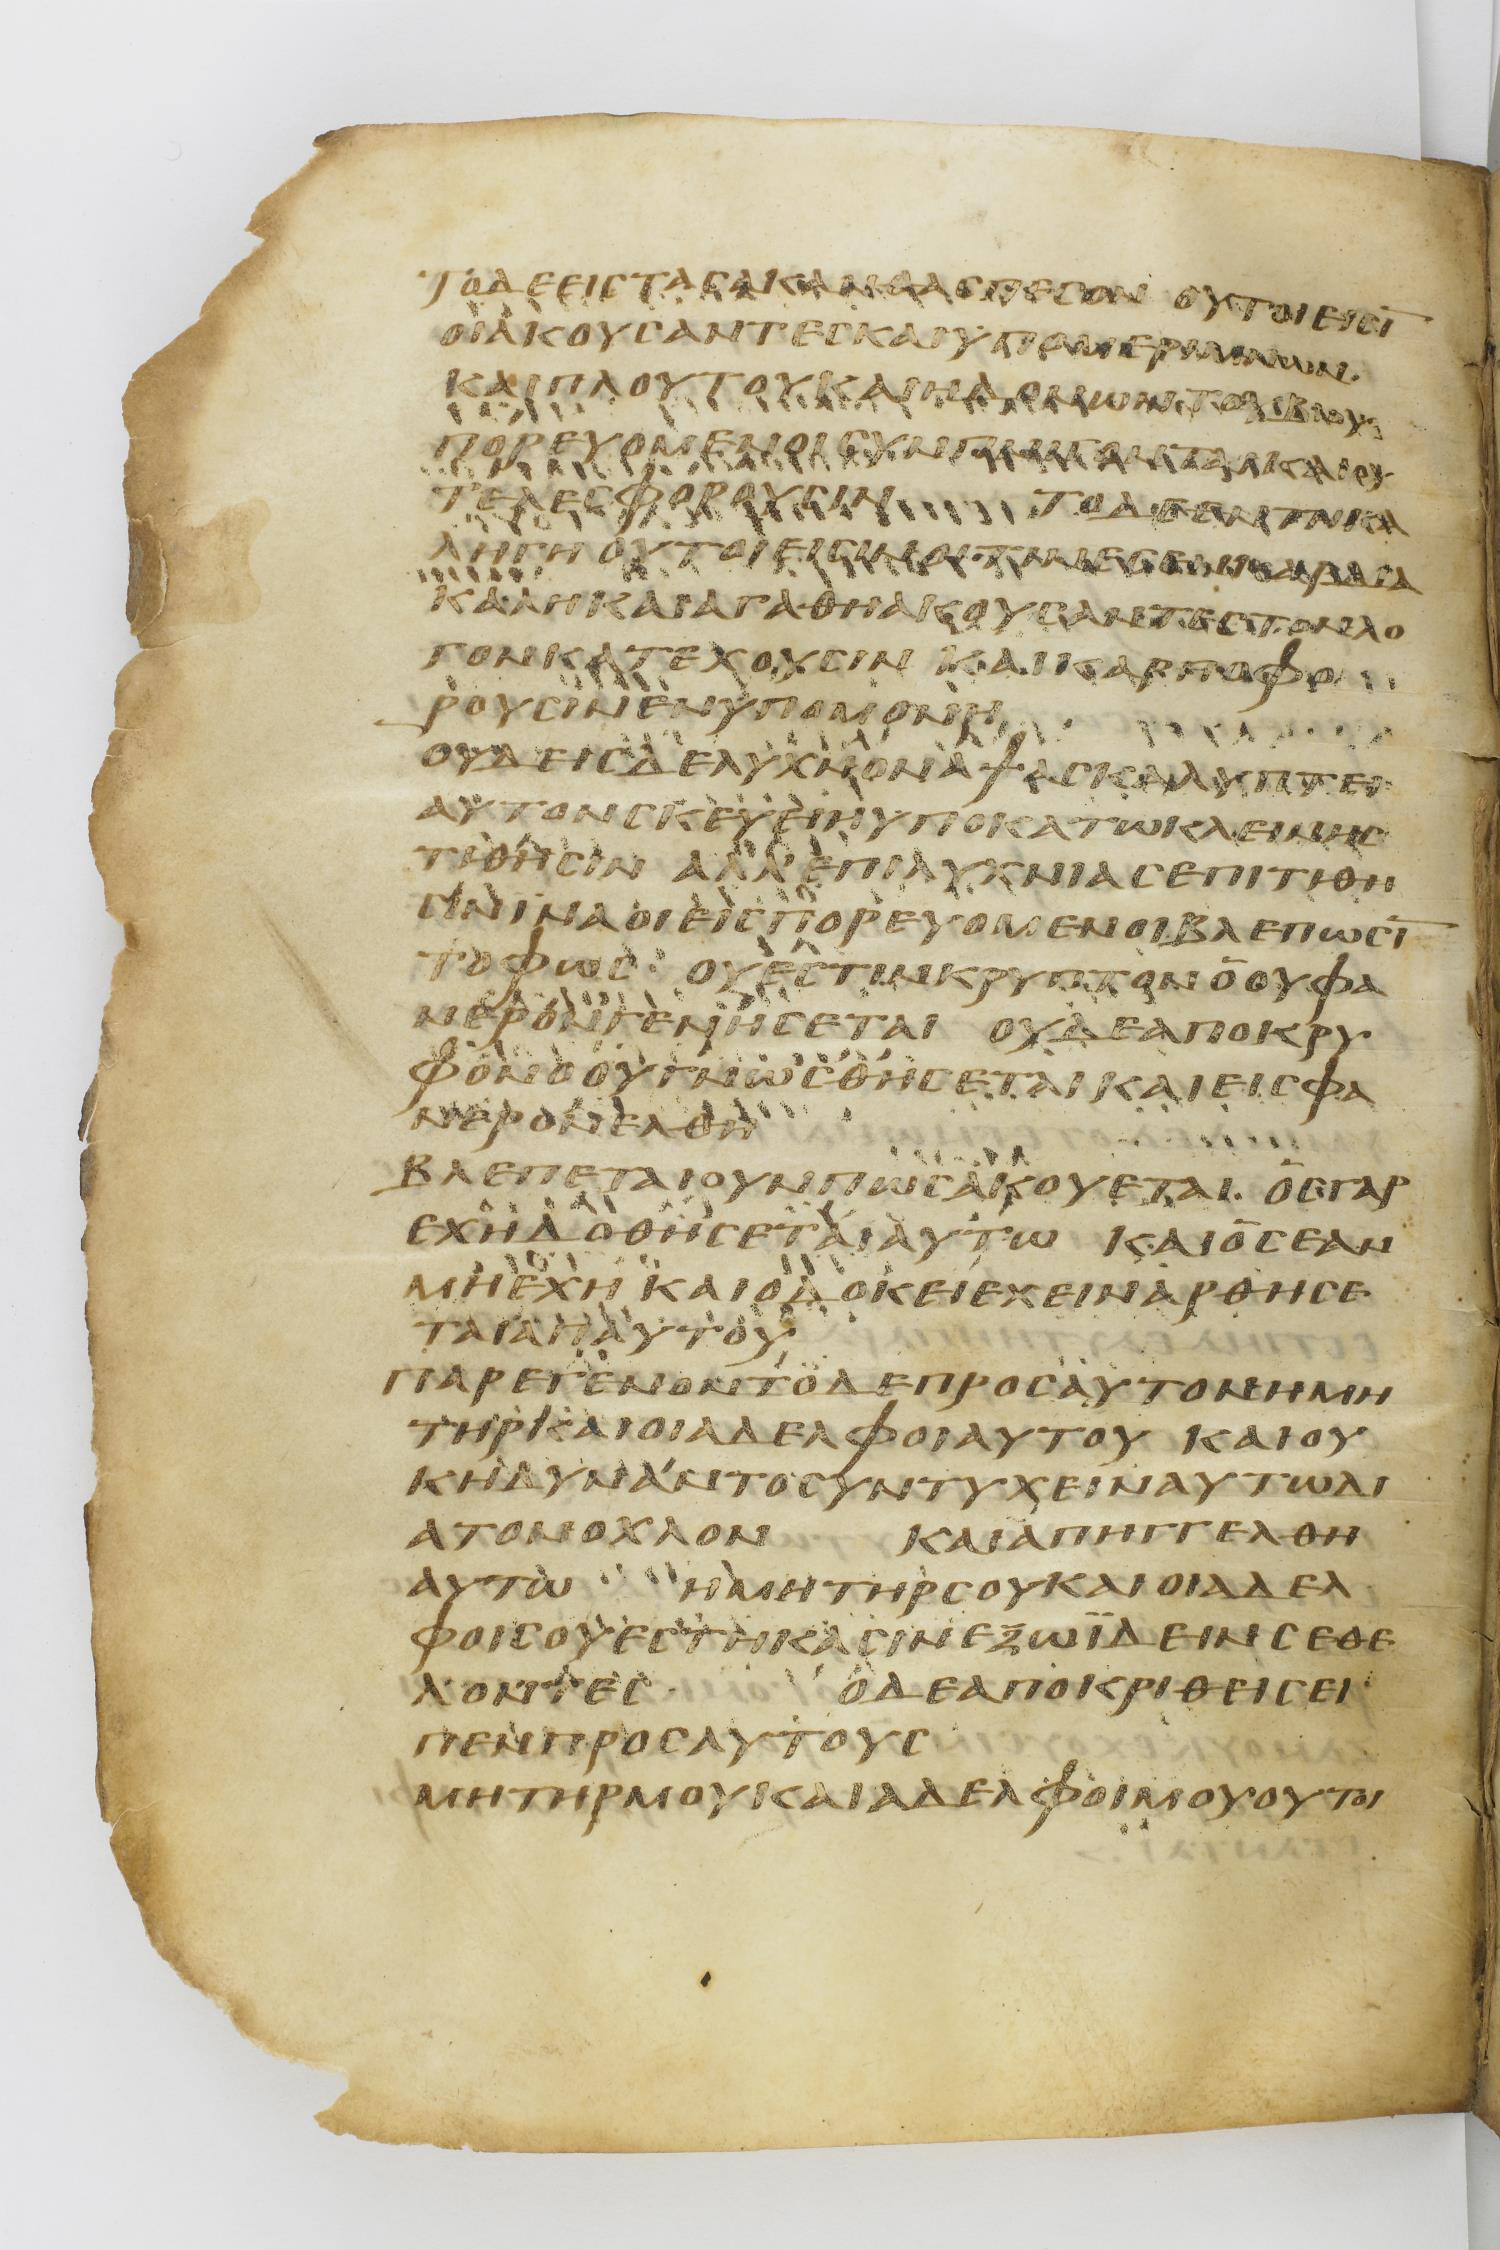 ΤΟΔΕΕΙΣΤΑΣΑΚΑΝΘΑΣΠΕΣΟΝ ΟΥΤΟΙΕΙΣΙ̅
ΟΙΑΚΟΥΣΑΝΤΕΣΚΑΙΥΠΟΜΕΡΙΜΝΩΝ·
ΚΑΙΠΛΟΥΤΟΥΚΑΙΗΔΟΝΩΝΤΟΥΒΙΟΥ
ΠΟΡΕΥΟΜΕΝΟΙΣΥΝΠΝΙΓΟΝΤΑΙΚΑΙΟΥ
ΤΕΛΕΣΦΟΡΟΥΣΙΝ ΤΟΔΕΕΝΤΗΚΑ
ΛΗΓΗΟΥΤΟΙΕΙΣΙΝΟΙΤΙΝΕΣΕΝΚΑΡΔΙΑ
ΚΑΛΗΚΑΙΑΓΑΘΗΑΚΟΥΣΑΝΤΕΣΤΟΝΛΟ
ΓΟΝΚΑΤΕΧΟΥΣΙΝ ΚΑΙΚΑΡΠΟΦΟ
ΡΟΥΣΙΝΕΝΥΠΟΜΟΝΗ
ΟΥΔΕΙΣΔΕΛΥΧΝΟΝΑΨΑΣΚΑΛΥΠΤΕΙ
ΑΥΤΟΝΣΚΕΥΕΙΗΥΠΟΚΑΤΩΚΛΕΙΝΗΣ
ΤΙΘΗΣΙΝ ΑΛΛΕΠΙΛΥΧΝΙΑΣΕΠΙΤΙΘΗ
ΣΙΝΙΝΑΟΙΕΙΣΠΟΡΕΥΟΜΕΝΟΙΒΛΕΠΩΣΙ̅
ΤΟΦΩΣ· ΟΥΕΣΤΙΝΚΡΥΠΤΟΝΟΟΥΦΑ
ΝΕΡΟΝΓΕΝΗΣΕΤΑΙ ΟΥΔΕΑΠΟΚΡΥ
ΦΟΝΟΟΥΓΝΩΣΘΗΣΕΤΑΙΚΑΙΕΙΣΦΑ
ΝΕΡΟΝΕΛΘΗ
ΒΛΕΠΕΤΑΙΟΥΝΠΩΣΑΚΟΥΕΤΑΙ· ΟΣΓΑΡ
ΕΧΗΔΟΘΗΣΕΤΑΙΑΥΤΩ ΚΑΙΟΣΕΑΝ
ΜΗΕΧΗΚΑΙΟΔΟΚΕΙΕΧΕΙΝΑΡΘΗΣΕ
ΤΑΙΑΠΑΥΤΟΥ
ΠΑΡΕΓΕΝΟΝΤΟΔΕΠΡΟΣΑΥΤΟΝΗΜΗ
ΤΗΡΚΑΙΟΙΑΔΕΛΦΟΙΑΥΤΟΥ ΚΑΙΟΥ
ΚΗΔΥΝΑΝΤΟΣΥΝΤΥΧΕΙΝΑΥΤΩΔΙ
ΑΤΟΝΟΧΛΟΝ ΚΑΙΑΠΗΓΓΕΛΘΗ
ΑΥΤΩ ΗΜΗΤΗΡΣΟΥΚΑΙΟΙΑΔΕΛ
ΦΟΙΣΟΥΕΣΤΗΚΑΣΙΝΕΞΩΪΔΕΙΝΣΕΘΕ
ΛΟΝΤΕΣ· ΟΔΕΑΠΟΚΡΙΘΕΙΣΕΙ
ΠΕΝΠΡΟΣΑΥΤΟΥΣ
ΜΗΤΗΡΜΟΥΚΑΙΑΔΕΛΦΟΙΜΟΥΟΥΤΟΙ